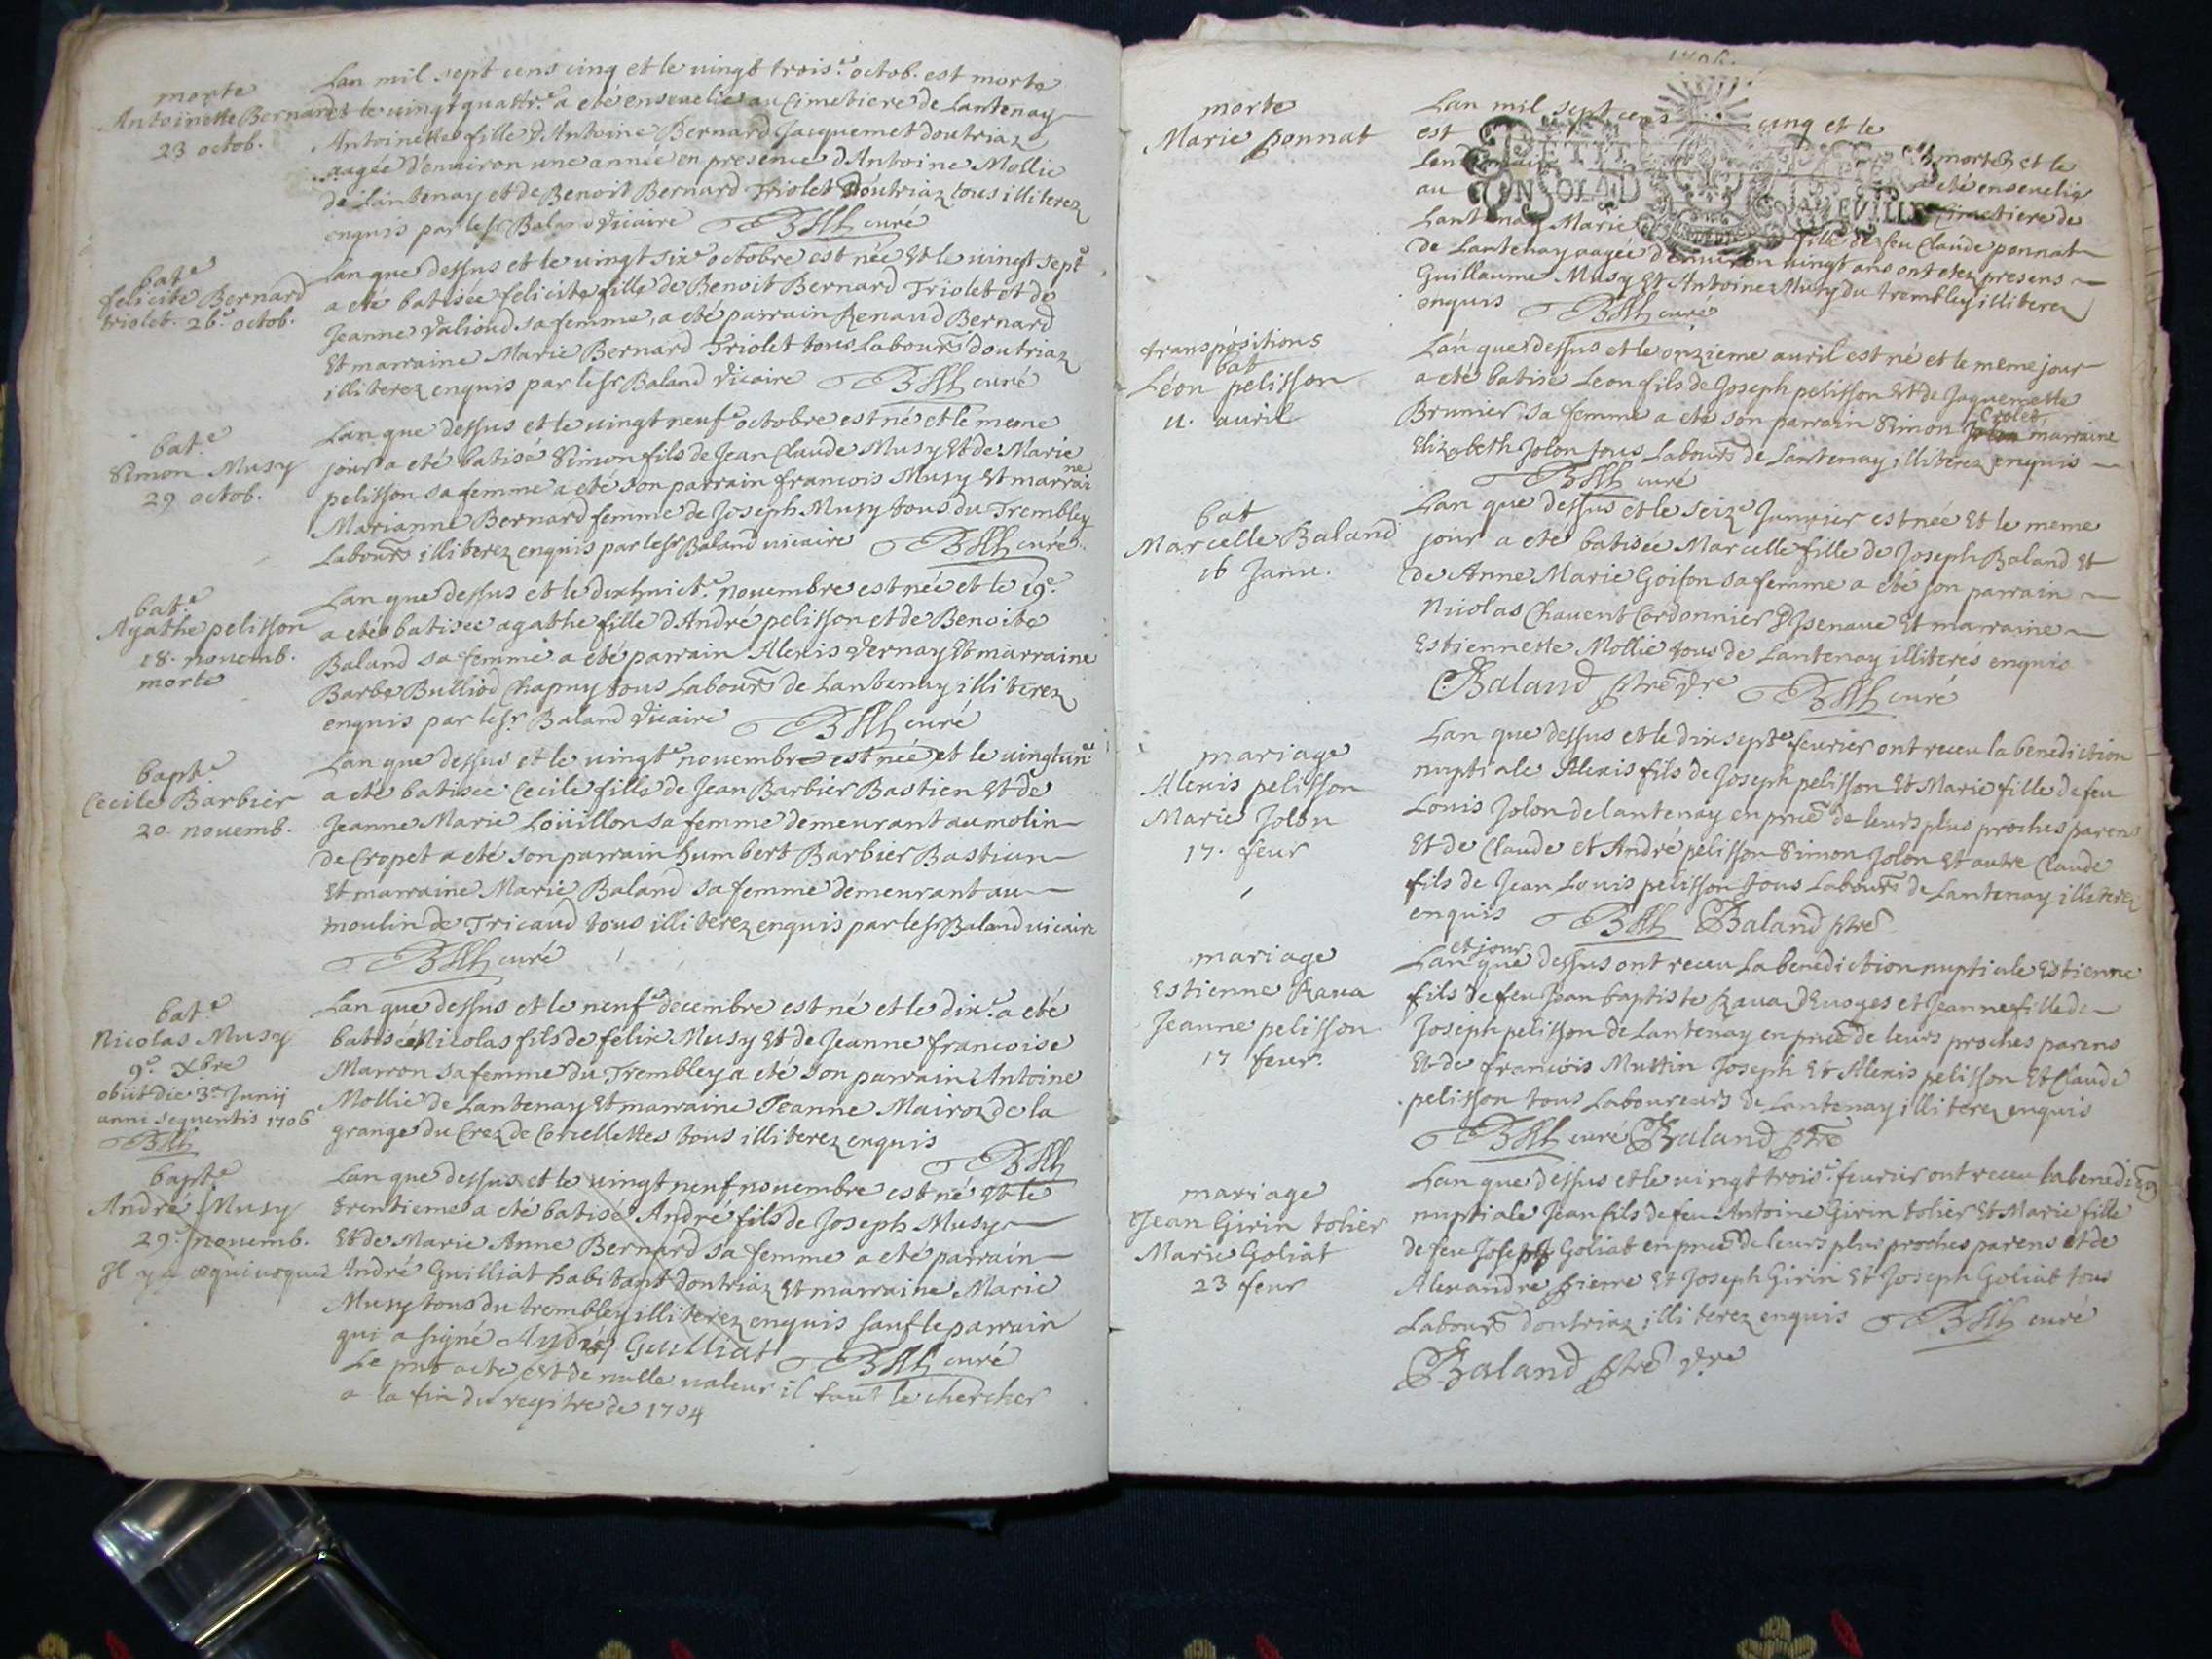 morte
Antoinette Bernard
23 octob.
Lan mil sept cens cinq et le vingt trois.e octob. est morte
et le vingt quattr.e a eté ensevelie au Cimetiere de Lantenay
Antoinette fille d'Antoine Bernard Jacquemet doutriaz
aagée d'environ une année en presence d'Antoine Mollie
de Lantenay et de Benoit Bernard Triolet d'outriaz tous illiterez
enquis par le Sr Baland Vicaire curé
bat.e
felicite Bernard
triolet. 26.e octob.
Lan que dessus et le vingt six.e octobre est née Et le vingt sept.e
a eté batisée felicite fille de Benoit Bernard Triolet et de
Jeanne Valioud sa femme, a eté parrain Renaud Bernard
Et marraine Marie Bernard Triolet tous Labours doutriaz
illiterez enquis par le Sr Baland Vicaire curé
bat.e
Simon Musy
29 octob.
Lan que dessus et le vingt neuf.e octobre est né et le meme
jour a eté batisé Simon fils de Jean Claude Musy Et de Marie
pelisson sa femme a eté son parrain francois Musy Et marraine
Marianne Bernard femme de Joseph Musy tous du Trembley
Labours illiterez enquis par le Sr Baland vicaire curé
bat.e
Agathe pelisson
18. novemb.
morte
Lan que dessus et le dixhuict.e novembre est née et le 19.e
a eté batisée agathe fille d'André pelisson et de Benoite
Baland sa femme a eté parrain Alexis Vernay Et marraine
Barbe Bulliod Chapuy tous Labours de Lantenay illiterez
enquis par le Sr. Baland Vicaire curé
bapt.e
Cecile Barbier
20 novemb.
Lan que dessus et le vingt.e novembre est née et le vingtun.e
a eté batisée Cecile fille de Jean Barbier Bastien Et de
Jeanne Marie Louillon sa femme demeurant au molin
de Cropet a eté son parrain humbert Barbier Bastian
Et marraine Marie Baland sa femme demeurant au
moulin de Tricaud tous illiterez enquis par le Sr Baland vicaire
curé
bat.e
Nicolas Musy
9.e Xbre
obiit die 3.a Junij
anni sequentis 1706
Lan que dessus et le neuf.e decembre est né et le dix.e a eté
batisé Nicolas fils de felix Musy Et de Jeanne francoise
Marron sa femme du Trembley a eté son parrain Antoine
Mollie de Lantenay Et marraine Jeanne Mairoz de la
grange du Crez de Corcellettes tous illiterez enquis
bapt.e
André Musy
29.e novemb.
Il y a equivoque
Lan que dessus et le vingt neuf novembre est né Et le
trentieme a eté batisé André fils de Joseph Musy
Et de Marie Anne Bernard sa femme a eté parrain
André Guilliat habitant doutriaz Et marraine Marie
Musy tous du trembley illiterez enquis sauf le parrain
qui a signé André Guilliat curé
Le pnt acte est de nulle valeur il faut le chercher
a la fin du regitre de 1704
1706.
morte
Marie ponnat
Lan mil sept cens cinq et le
est morte et le
Lendemain eté ensevelie
au Cimetiere de
PETIT PAPIER
UN SOL
Lantenay Marie fille de feu Claude ponnat
de Lantenay aagée d'environ vingt ans ont eté presens
Guillaume Musy Et Antoine Musy du trembley illiterez
enquis curé
transpositions
bat
Léon pelisson
11. avril
Lan que dessus et le onzieme avril est né et le meme jour
a eté batisé Leon fils de Joseph pelisson Et de Jaquemette
Brunier sa femme a eté son parrain Simon marraine
Elizabeth Jolon tous Labours de Lantenay illiterez enquis
curé
bat
Marcelle Baland
16 Janv.
Lan que dessus et le seize Janvier est née Et le meme
jour a eté batisée Marcelle fille de Joseph Baland Et
de Anne Marie Goison sa femme a eté son parrain
Nicolas Chavent Cordonnier d'Isenave Et marraine
Estiennette Mollie tous de Lantenay illiterés enquis
Baland ptre v.re curé
mariage
Alexis pelisson
Marie Jolon
17. fevr
Lan que dessus et le dixsept.e fevrier ont receu la benediction
nuptiale Alexis fils de Joseph pelisson Et Marie fille de feu
Louis Jolon de lantenay en pnce de leurs plus proches parens
Et de Claude et André pelisson Simon Jolon Et autre Claude
fils de Jean Louis pelisson tous Labours de Lantenay illiterez
enquis Baland ptre
mariage
Estienne Rava
Jeanne pelisson
17 fevr.
Lan et jour que dessus ont receu La benediction nuptiale Estienne
fils de feu Jean baptiste Rava d'Eusges et Jeanne fille de
Joseph pelisson de Lantenay en pnce de leurs proches parens
Et de francois Muttin Joseph Et Alexis pelisson Et Claude
pelisson tous Laboureurs de Lantenay illiterez enquis
curé Baland ptre
mariage
Jean Girin tolier
Marie Goliat
23 fevr
Lan que dessus et le vingt trois.e fevrier ont receu la benedion
nuptiale Jean fils de feu Antoine Girin tolier Et Marie fille
de feu Joseph Goliat en pnce de leurs plus proches parens et de
Alexandre pierre Et Joseph Girin Et Joseph Goliat tous
Labours doutriaz illiterez enquis curé
Baland ptre v.re